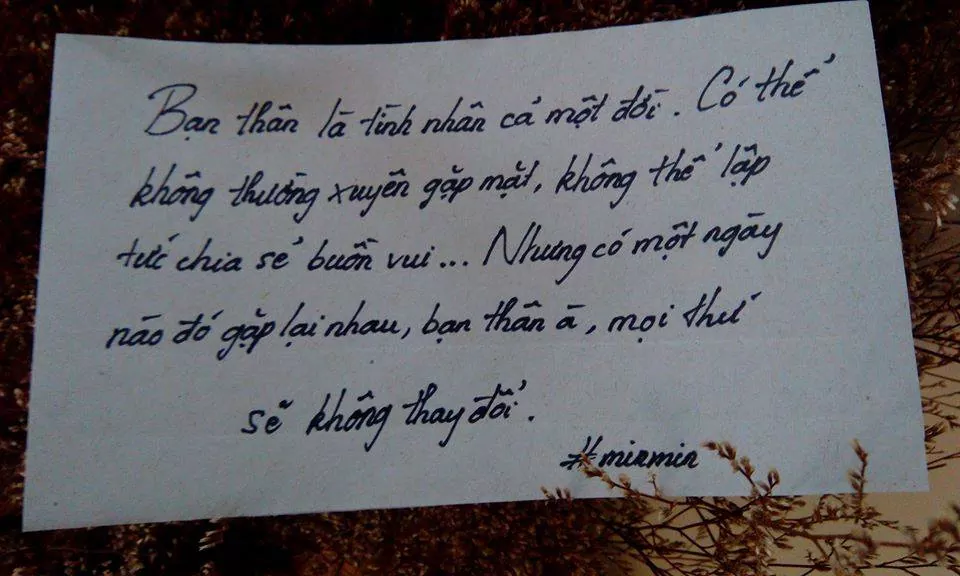 Bạn thân là tình nhân cả một đời. Có thể
không thường xuyên gặp mặt, không thể lập
tức chia sẻ buồn vui... Nhưng có một ngày
nào đó gặp lại nhau, bạn thân à, mọi thứ
sẽ không thay đổi.
#minmin